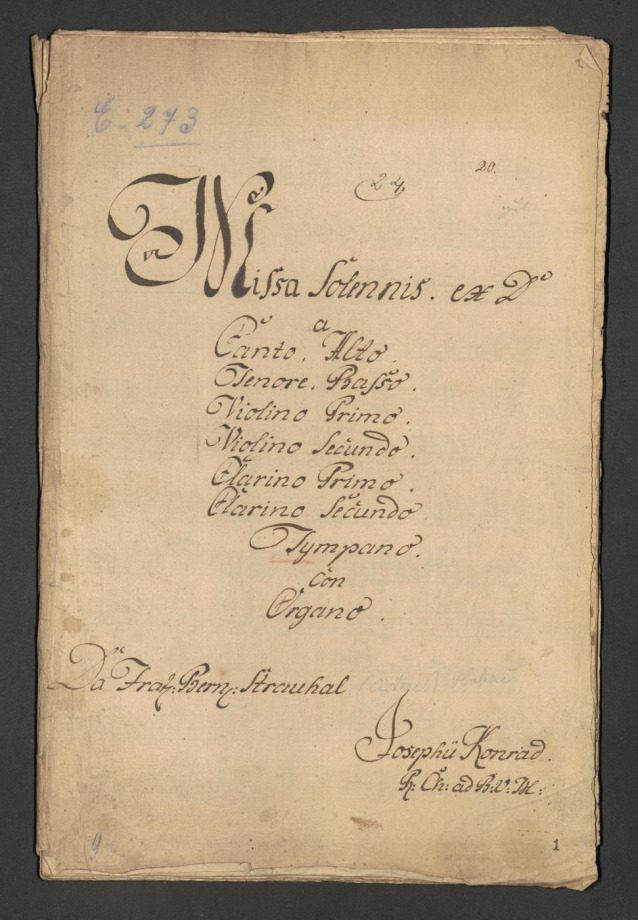 C: 273
24 20.
Missa Solennis. ex D
a
Canto, Alto.
Tenore, Basso.
Violino Primo.
Violino Secundo.
Clarino Primo.
Clarino Secundo.
Tympano.
con
Organo.
Da Bern: Strauhal
Josephü Konrad.
R: Ch: ad B: V: M:
9 1